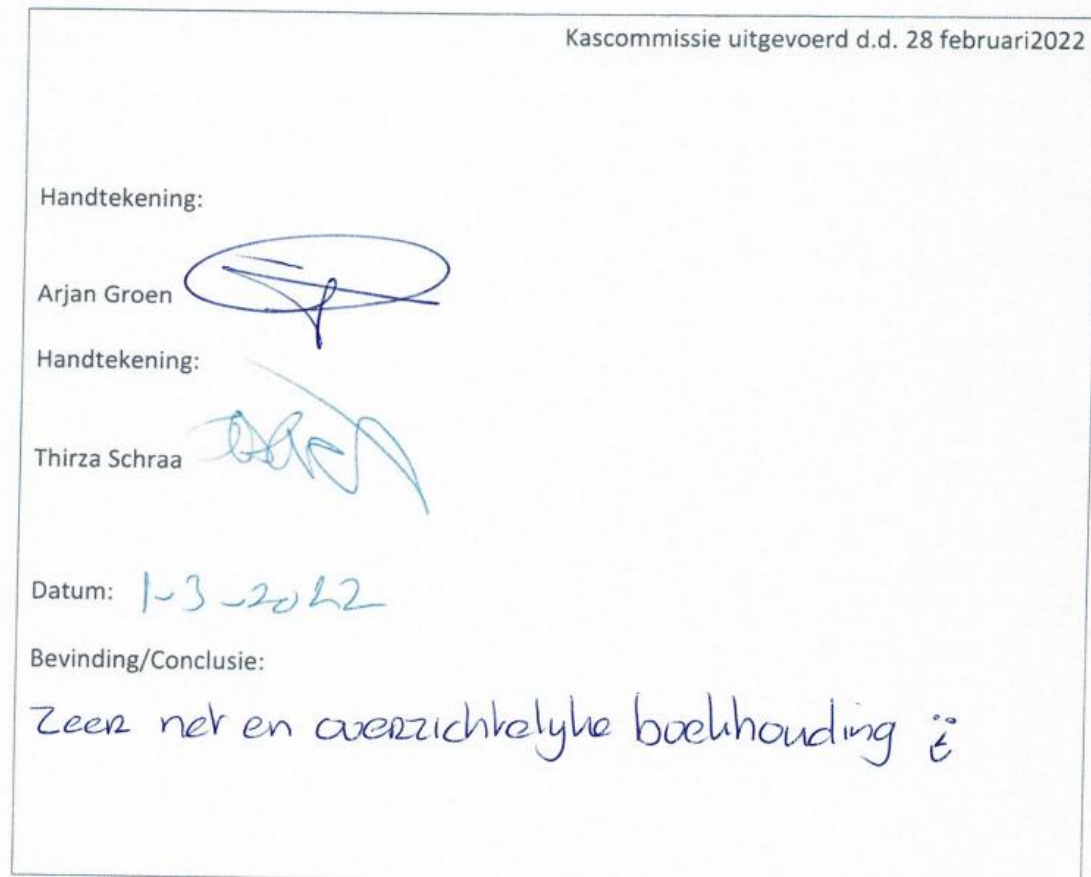 Kascommissie uitgevoerd d.d. 28 februari2022
Handtekening:
Arjan Groen
Handtekening:
Thirza Schraa
Datum: 1-3-2022
Bevinding/Conclusie:
Zeer net en overzichtelyke boekhouding